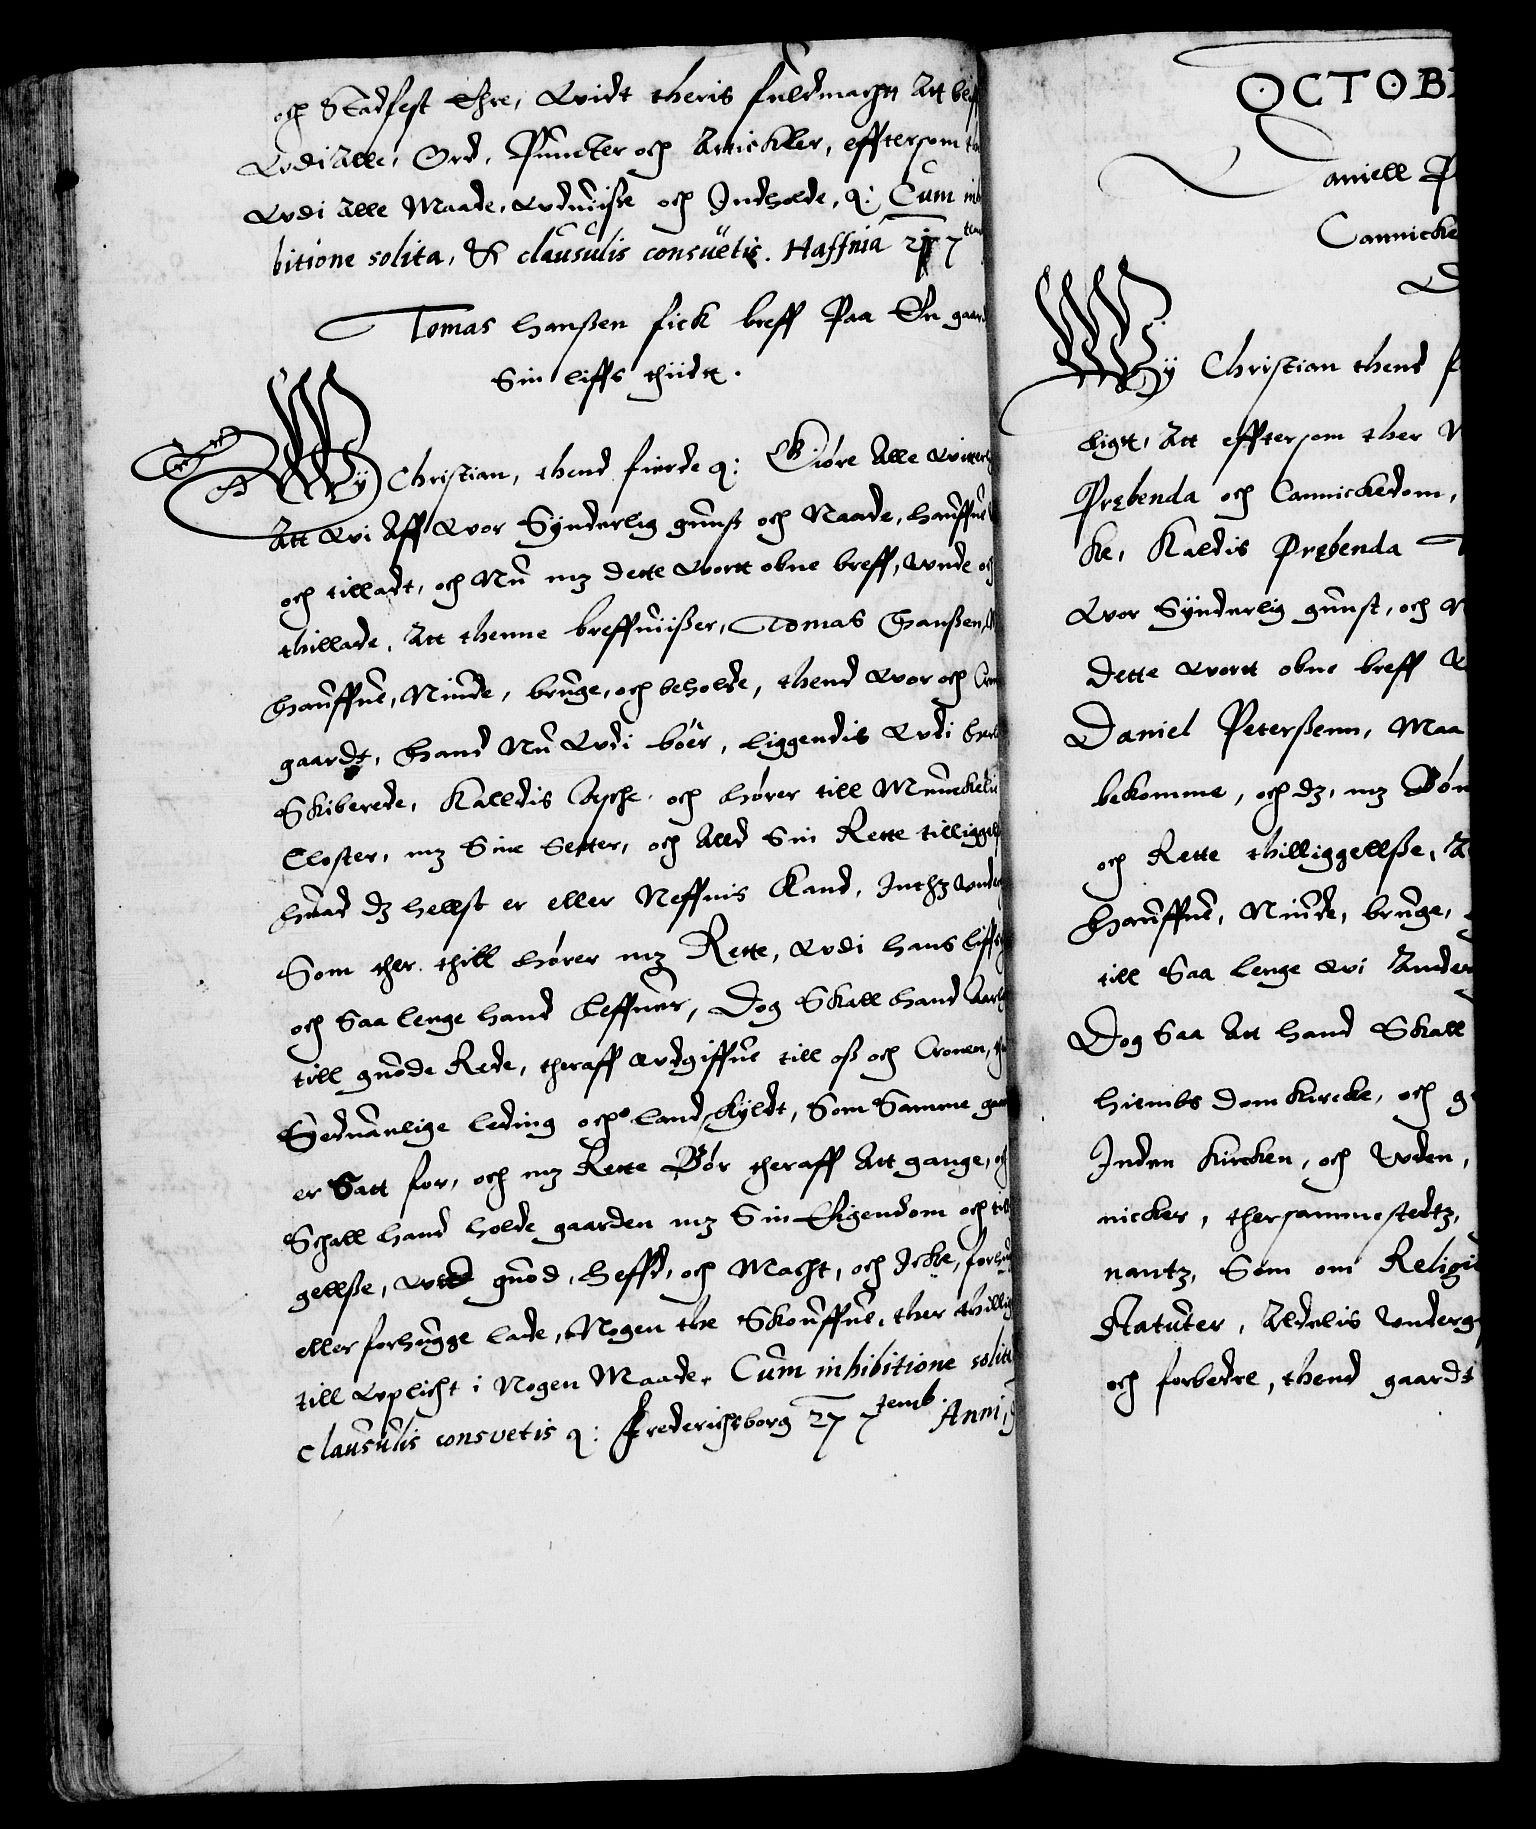 och Stadfest Ehre, Widt theris fuldmacht Att
Udi Alle, Ord, Puncter och Artickler, efftersom
Udi Alle Maade, Udwiisse och Indholde, &: Cum inhi
bitione solita, & clausulis consuetis. Haffnia 27 7
Tomas Hanßen fick breff Paa En gaard
Sin liffs thiidt.
Wy Christian, thend fierde &: Giøre Alle Witterligt
Att Wi Aff Wor Synderlig gunst och Naade, haffue
och tilladt, och Nu mz dette Wort obne breff, Unde och
thillade, Att thenne breffuiißer, Tomas Hanßen, M
Haffue, Niude, bruge, och beholde, thend Wor och Cron
gaardt, Hand Nu Udi boer, liggendis Udi
Skiberede, Kalldis och hører till Munckeliff
Closter, mz Sine Setter, och Alld Sin Rette tilliggelse
Huad dz hellst er eller Neffnis Kand, Inthz Unde
Som ther thill hører mz Rette, Udi hans liffs
och Saa lenge hand leffuer, Dog Skall hand Aarlig
till guode Rede, theraff Udgiffue till oß och Cronen,
Seduanlige leding och landskyldt, Som Samme gaard
er Satt for, och mz Rette Bør theraff Att gange, och
Schall hand holde gaarden mz Sin Eigendom och till
gellse, Ved guod, Hefft, och Macht, och Icke, forhugge
eller forhugge lade, Nogen the Skouffue, ther thillig
till Uplicht i Nogen Maade. Cum inhibitione solita
clausulis consvetis &: Frederichsborg 27 7temb. Anni
OCTOB
Daniell P
Cannicke
Wy Christian thend f
ligt, Att efftersom ther
Præbenda och Cannickedom,
ke, Kaldis Præbenda
Wor Synderlig gunst, och N
dette Wort obne breff
Daniel Peterßenn, Maa
bekomme, och dz, mz Bøn
och Rette thilliggellße,
Haffue, Niude, bruge,
till Saa lenge Wi Ander
Dog Saa Att hand Skall
hiembs domkircke, och g
Inden Kircken, och Uden,
nicker, thersammestedtz,
nantz, Som om Religi
Statuter, Aldelis Underg
och forbedre, thend gaardt